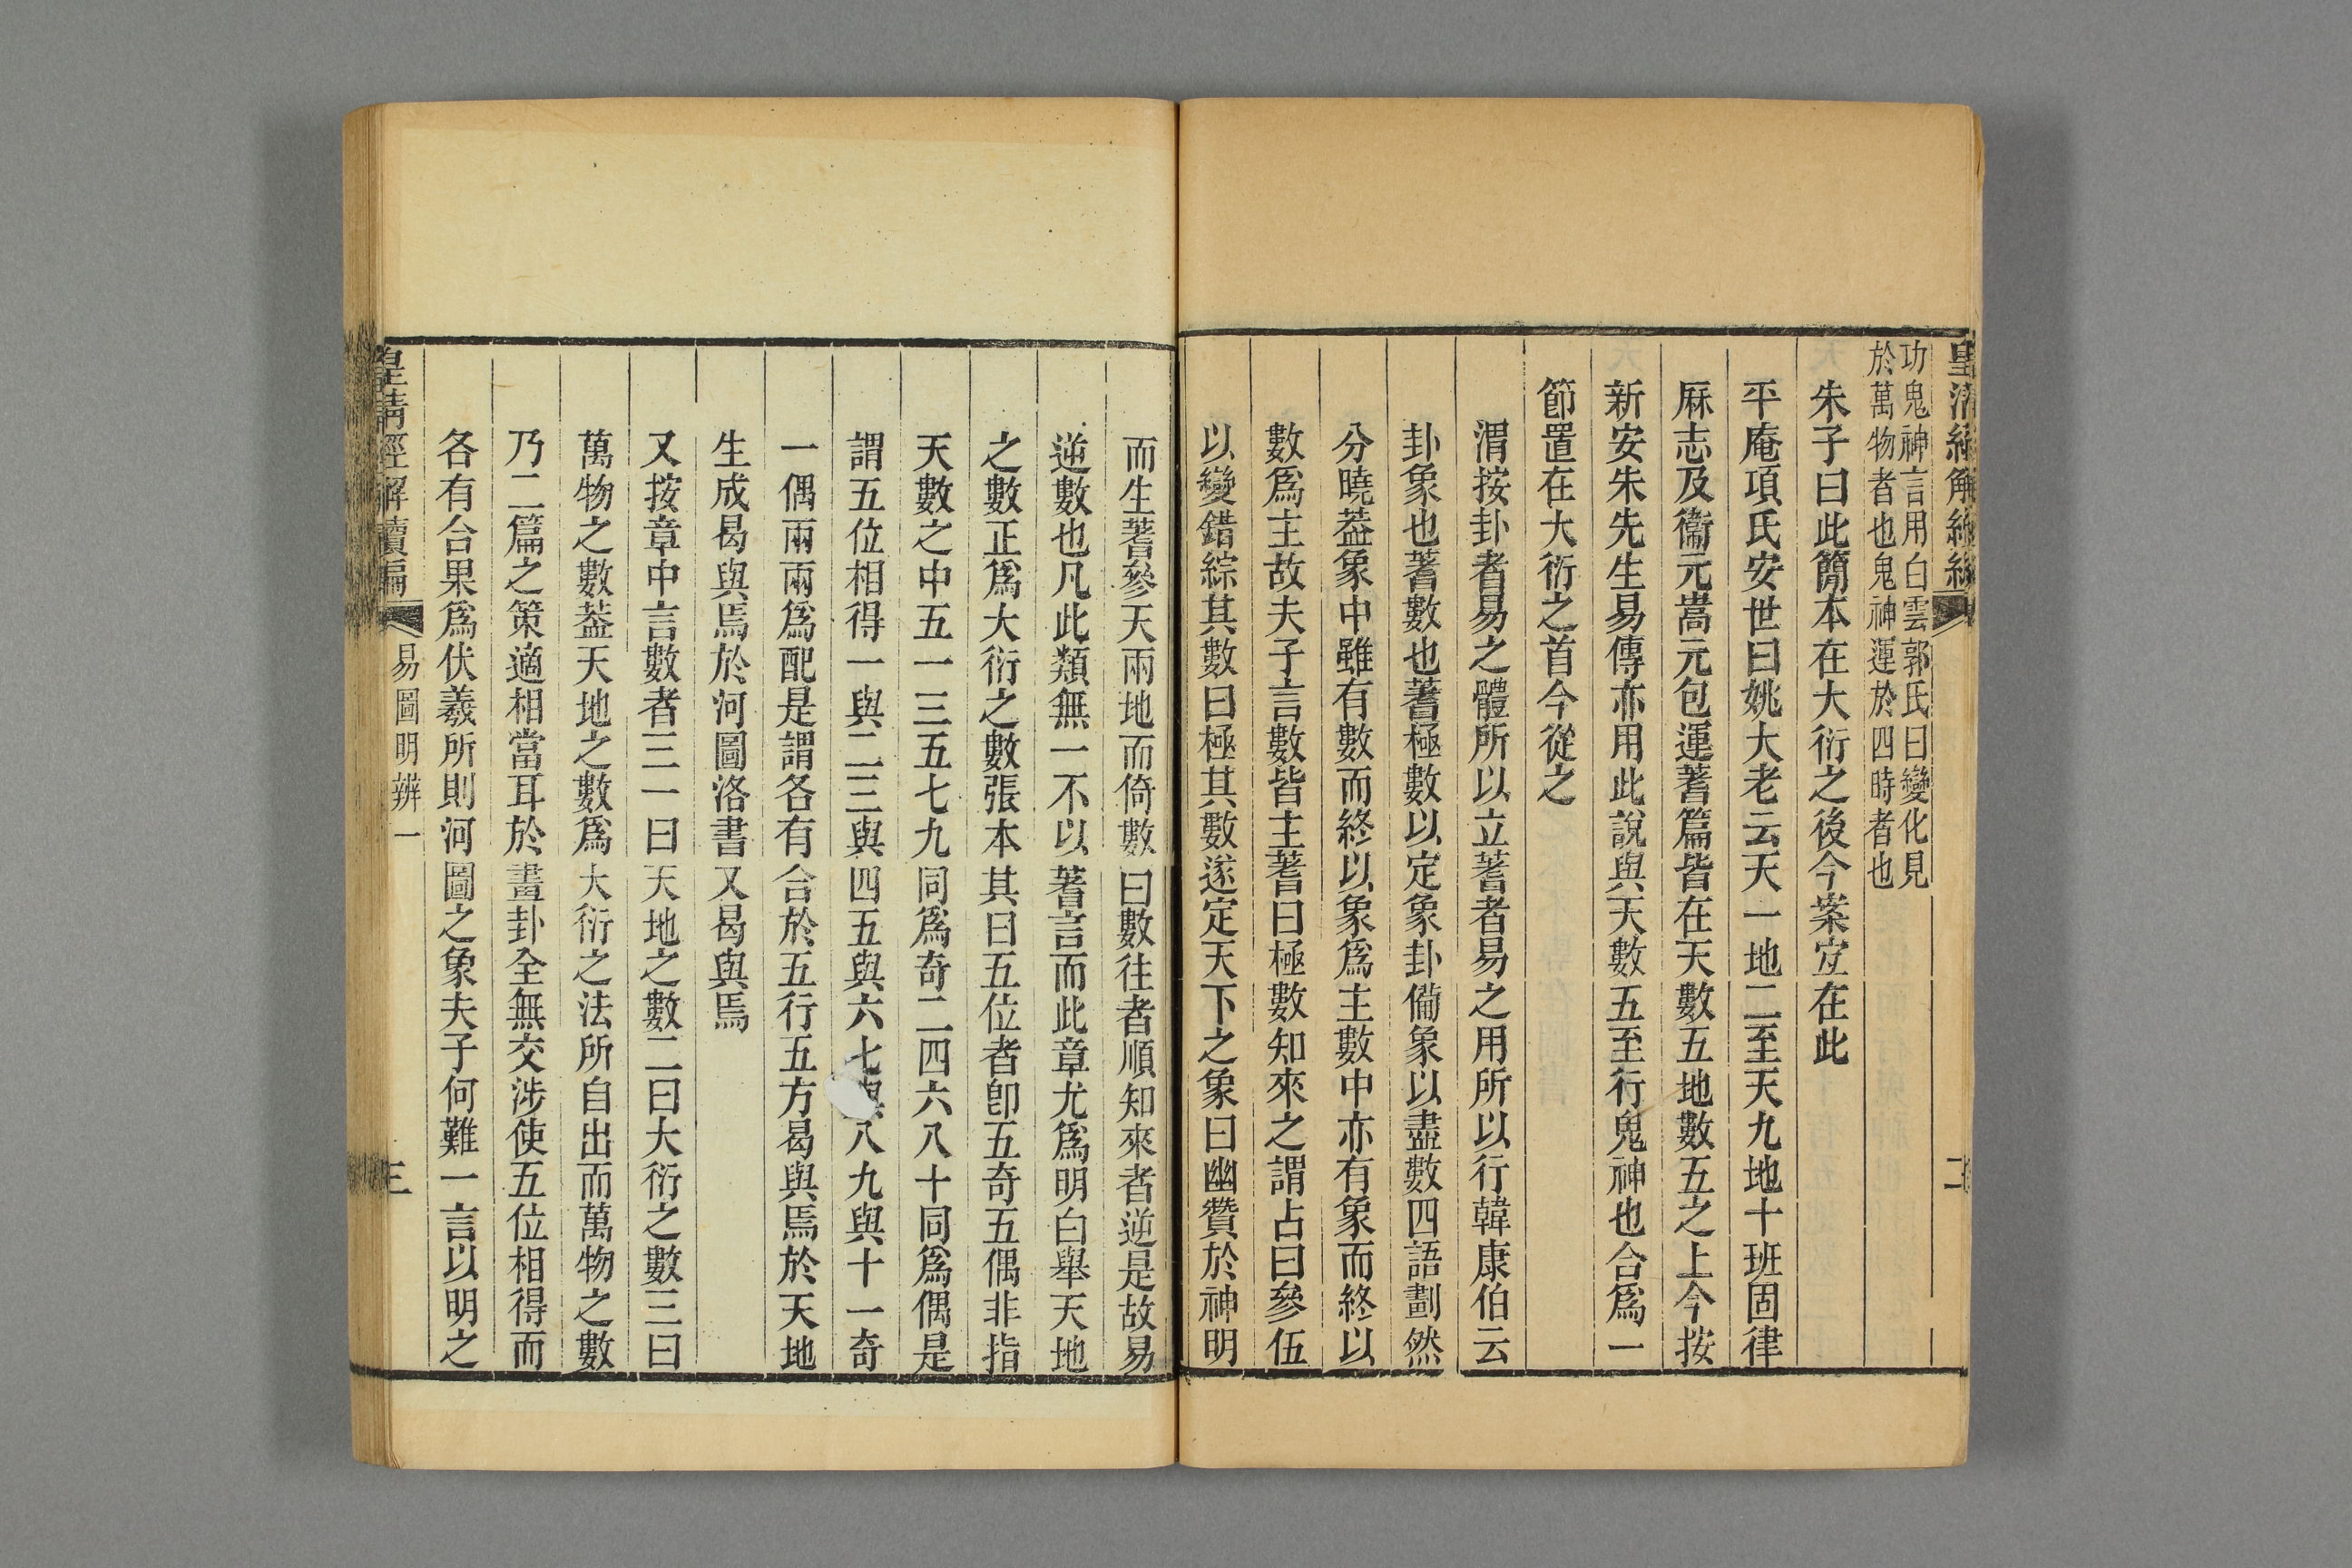 皇清經解續編
二
功鬼神言用白雲郭氏曰變化見
於萬物者也鬼神運於四時者也
朱子曰此簡本在大衍之後今案宜在此
平庵項氏安世曰姚大老云天一地二至天九地十班固律
厤志及衞元嵩元包運蓍篇皆在天數五地數五之上今按
新安朱先生易傳亦用此說與天數五至行鬼神也合爲一
節置在大衍之首今從之
渭按卦者易之體所以立蓍者易之用所以行韓康伯云
卦象也蓍數也蓍極數以定象卦備象以盡數四語劃然
分曉葢象中雖有數而終以象爲主數中亦有象而終以
數爲主故夫子言數皆主蓍曰極數知來之謂占曰參伍
以變錯綜其數曰極其數遂定天下之象曰幽贊於神明
而生蓍參天兩地而倚數曰數往者順知來者逆是故易
逆數也凡此類無一不以蓍言而此章尤爲明白舉天地
之數正爲大衍之數張本其曰五位者卽五奇五偶非指
天數之中五一三五七九同爲奇二四六八十同爲偶是
謂五位相得一與二三與四五與六七與八九與十一奇
一偶兩兩爲配是謂各有合於五行五方曷與焉於天地
生成曷與焉於河圖洛書又曷與焉
又按章中言數者三一曰天地之數二曰大衍之數三曰
萬物之數葢天地之數爲大衍之法所自出而萬物之數
乃二篇之策適相當耳於畫卦全無交涉使五位相得而
各有合果爲伏羲所則河圖之象夫子何難一言以明之
皇清經解續編
易圖明辨一
三